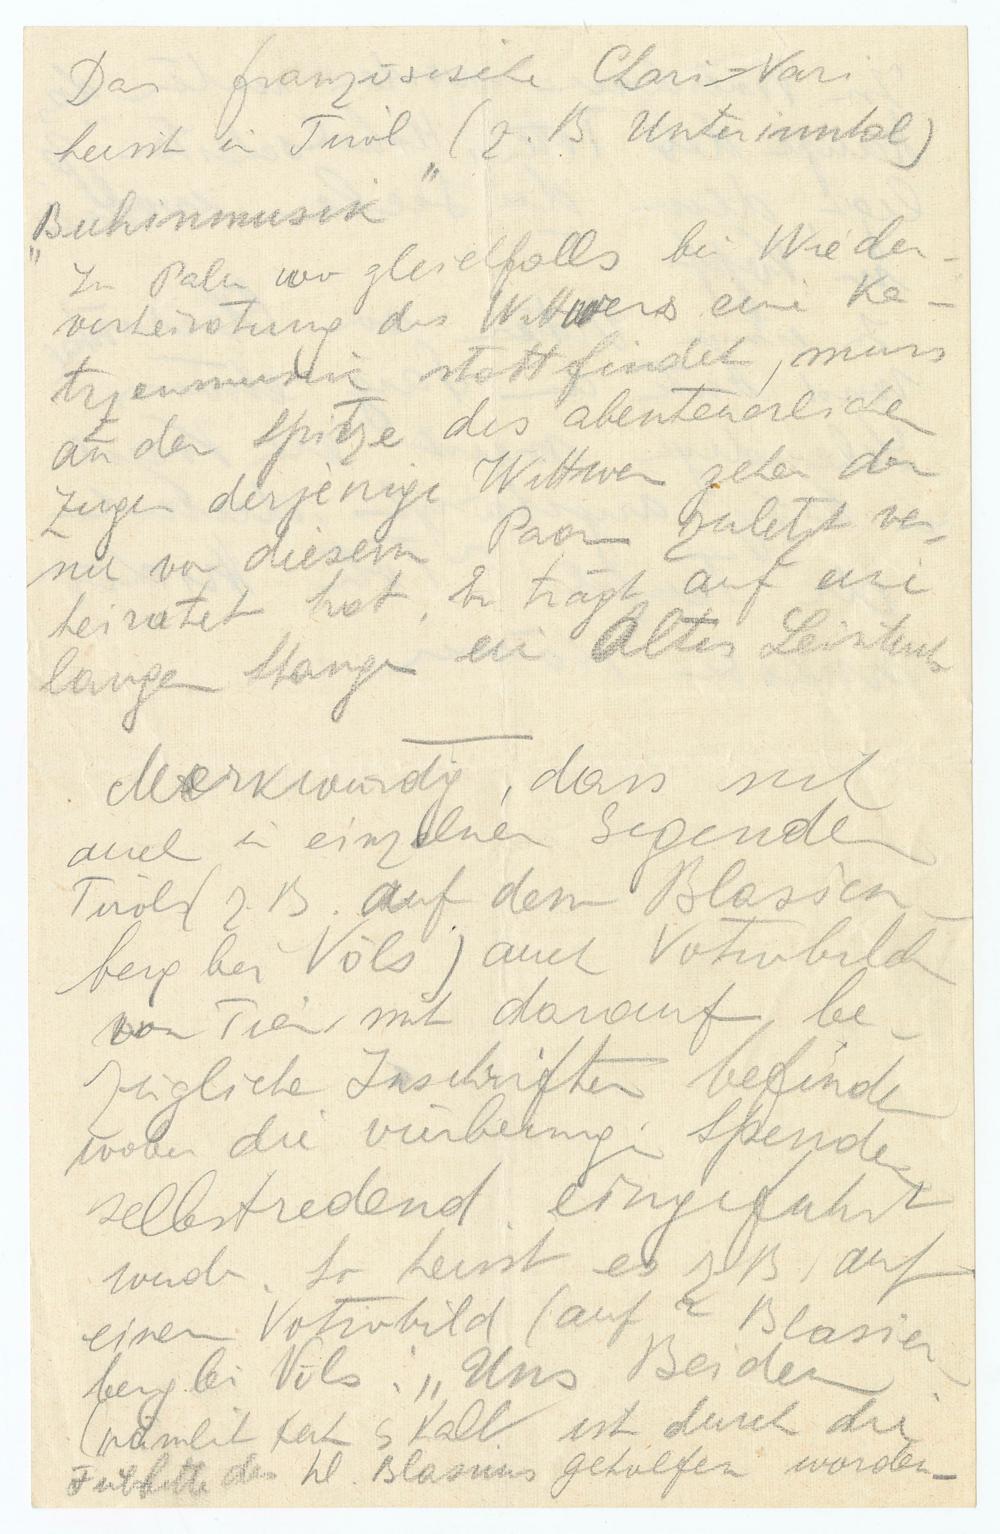 Das französische Chari-Vari
heisst in Tirol (z. B. Unterinntal)
"Buhinmusik"
In Palu wo gleichfalls bei Wieder-
verheiratung des Wittwers eine Ka-
tzenmusik stattfindet, muss
an der Spitze des abenteuerlichen
Zuges derjenige Wittwer gehen der
vor diesem Paar zuletzt ver-
heiratet hat. Er trägt auf eine
langen Stange ein altes Leintuch
Merkwürdig, dass sich
auch in einzelnen Gegenden
Tirols (z. B. auf dem Blasien-
berg bei Völs) auch Votivbilder
von Tieren mit darauf be-
züglichen Inschriften befinden
wobei die Spender
selbstredend eingeführt
werden. So heisst es z. B. auf
einem Votivbild (auf Blasien-
berg bei Völs: „Uns Beiden
(nämlich & Kalb ist durch die
Fürbitte des hl. Blasius geholfen worden